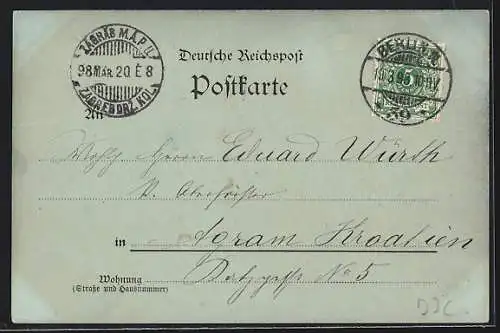 ZÁGRÁB M.Á.P.U.
98 MÁR. 20 É 8
ZAGREB DRŽ. KOL.
Deutsche Reichspost
Postkarte
BERLIN
5
An
Herrn Eduard Würth
K. Oberförster
in Agram Kroatien
Wohnung
(Straße und Hausnummer)
No 5